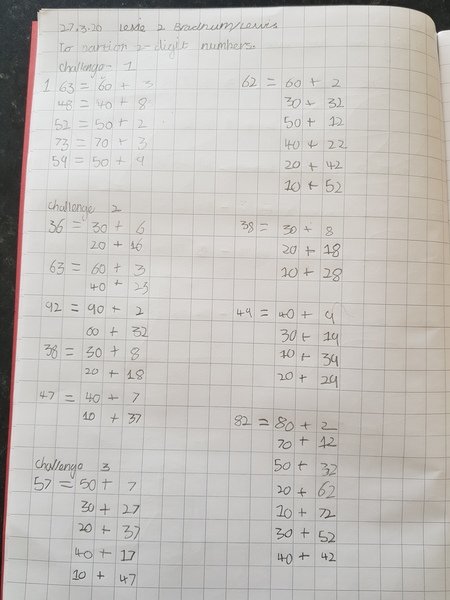 27.3.20 Lexie 2 Bradnum/Lewis
To partion 2-digit numbers.
Challenge 1
1 63 = 60 + 3
48 = 40 + 8
52 = 50 + 2
73 = 70 + 3
59 = 50 + 9
62 = 60 + 2
30 + 32
50 + 12
40 + 22
20 + 42
10 + 52
Challenge 2
36 = 30 + 6
20 + 16
63 = 60 + 3
40 + 23
92 = 90 + 2
60 + 32
38 = 30 + 8
20 + 18
47 = 40 + 7
10 + 37
38 = 30 + 8
20 + 18
10 + 28
49 = 40 + 9
30 + 19
10 + 39
20 + 29
82 = 80 + 2
70 + 12
50 + 32
20 + 62
10 + 72
30 + 52
40 + 42
Challenge 3
57 = 50 + 7
30 + 27
20 + 37
40 + 17
10 + 47